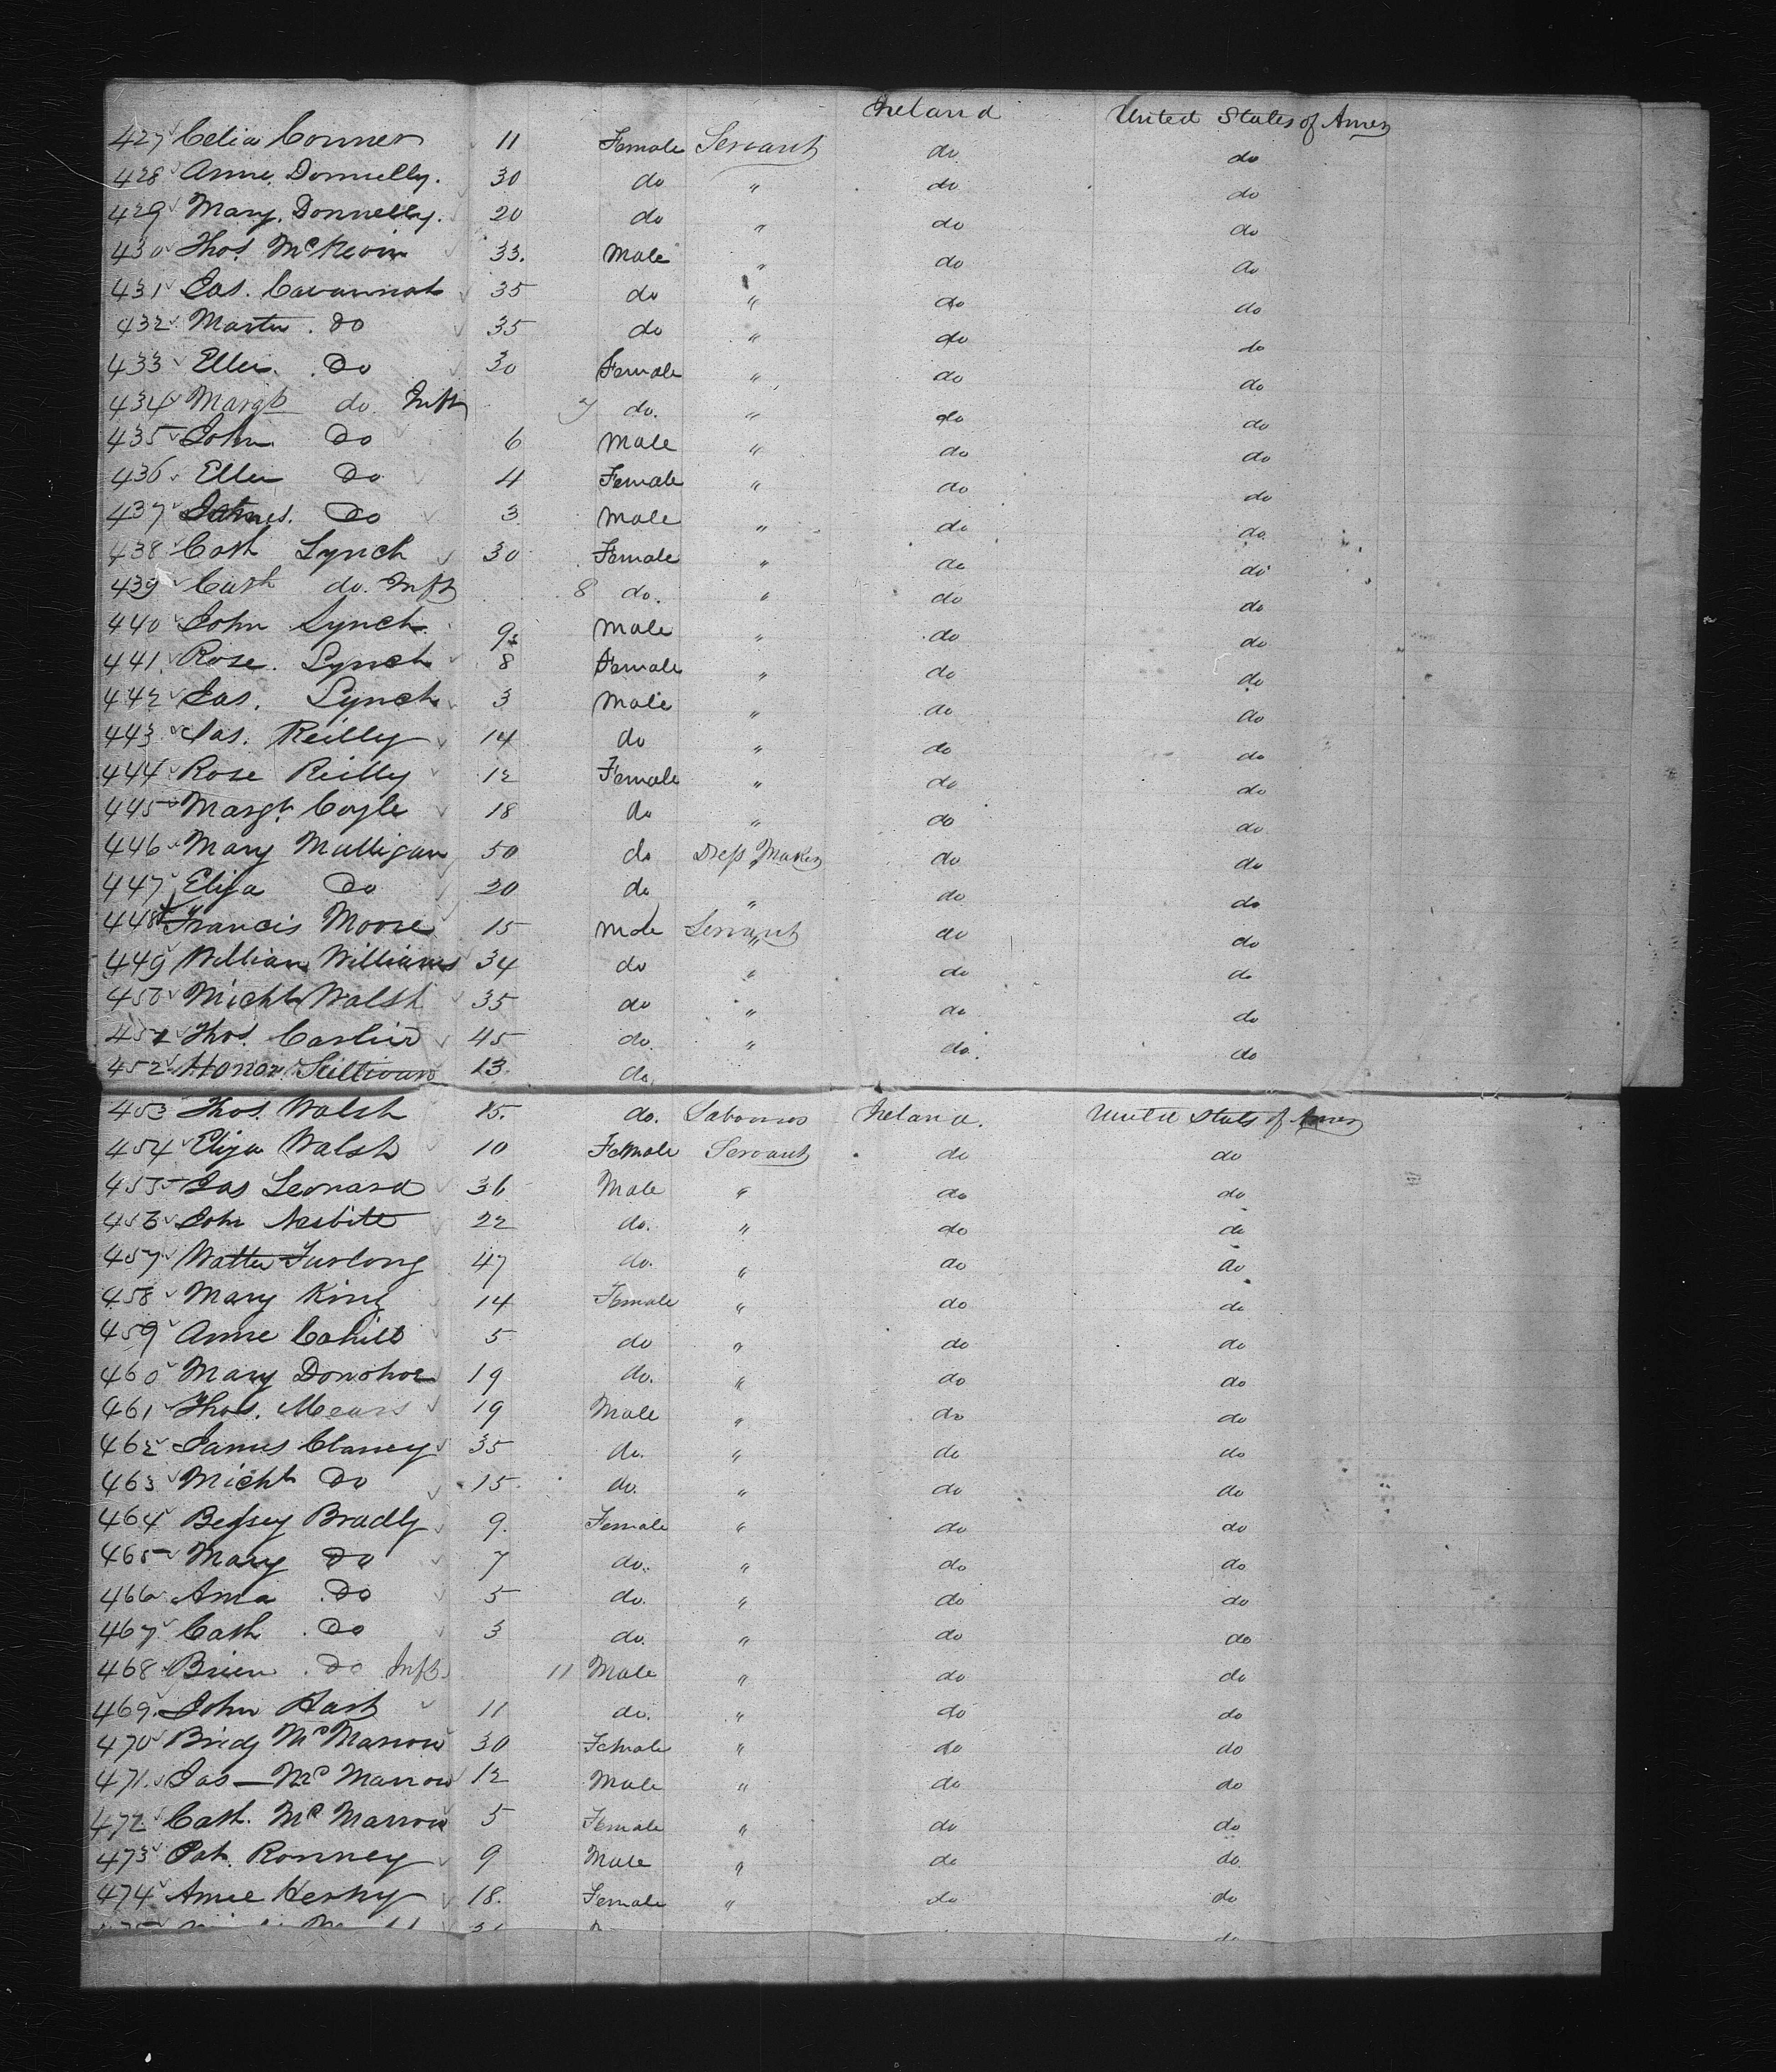 Ireland United States of Amer
427 Celia Conner 11 Female Servant do do
428 Anne Donnelly. 30 do " do do
429 Mary Donnelly. 20 do " do do
430 Thos. McKevin 33. Male " do do
431 Jas. Cavannah 35 do " do do
432 Martin. Do 35 do " do do
433 Ellen. Do 30 Female " do do
434 Margt do. Inft 7 do. " do do
435 John Do 6 Male " do do
436 Ellen Do 4 Female " do do
437 James. Do 3 Male " do do
438 Cath Lynch 30 Female " do do
439 Cath do. Inft 8 do. " do do
440 John Lynch 9. Male " do do
441. Rose. Lynch 8 Female " do do
442 Jas. Lynch 3 Male " do do
443 Jas. Reilly 14 do " do do
444 Rose Reilly 12 Female " do do
445 Margt. Coyle 18 do " do do
446 Mary Mulligan 50 do Dress Maker do do
447 Eliza Do 20 do " do do
448 Francis Moore 15 Male Servant do do
449 William Williams 34 do " do do
450 Michl Walsh 35 do " do do
451 Thos. 45 do. " do. do
452 Honor Sullivan 13. do
453 Thos. Walsh 15. do. Labourer Ireland. United States of Amer
454 Eliza Walsh 10 Female Servant do do
455 Jas Leonard 36 Male " do do
456 John Nesbitt 22 do. " do do
457 Walter Furlong 47 do. " do do
458 Mary King 14 Female " do do
459 Anne Cahill 5 do " do do
460 Mary Donohoe 19 do. " do do
461 Thos. Mears 19 Male " do do
462 James Clancy 35 do. " do do
463 Michl Do 15 do. " do do
464 Bessey Bradly 9. Female " do do
465 Mary Do 7 do. " do do
466 Anna Do 5 do. " do do
467 Cath Do 3 do. " do do
468 Brien Do Inft 11 Male " do do
469. John Hart 11 do. " do do
470 Bridg McMarrow 30 Female " do do
471. Jas McMarrow 12 Male " do do
472 Cath. McMarrow 5 Female " do do
473 Pat. Ronney 9 Male " do do
474 Anne Heshy 18. Female " do do
do